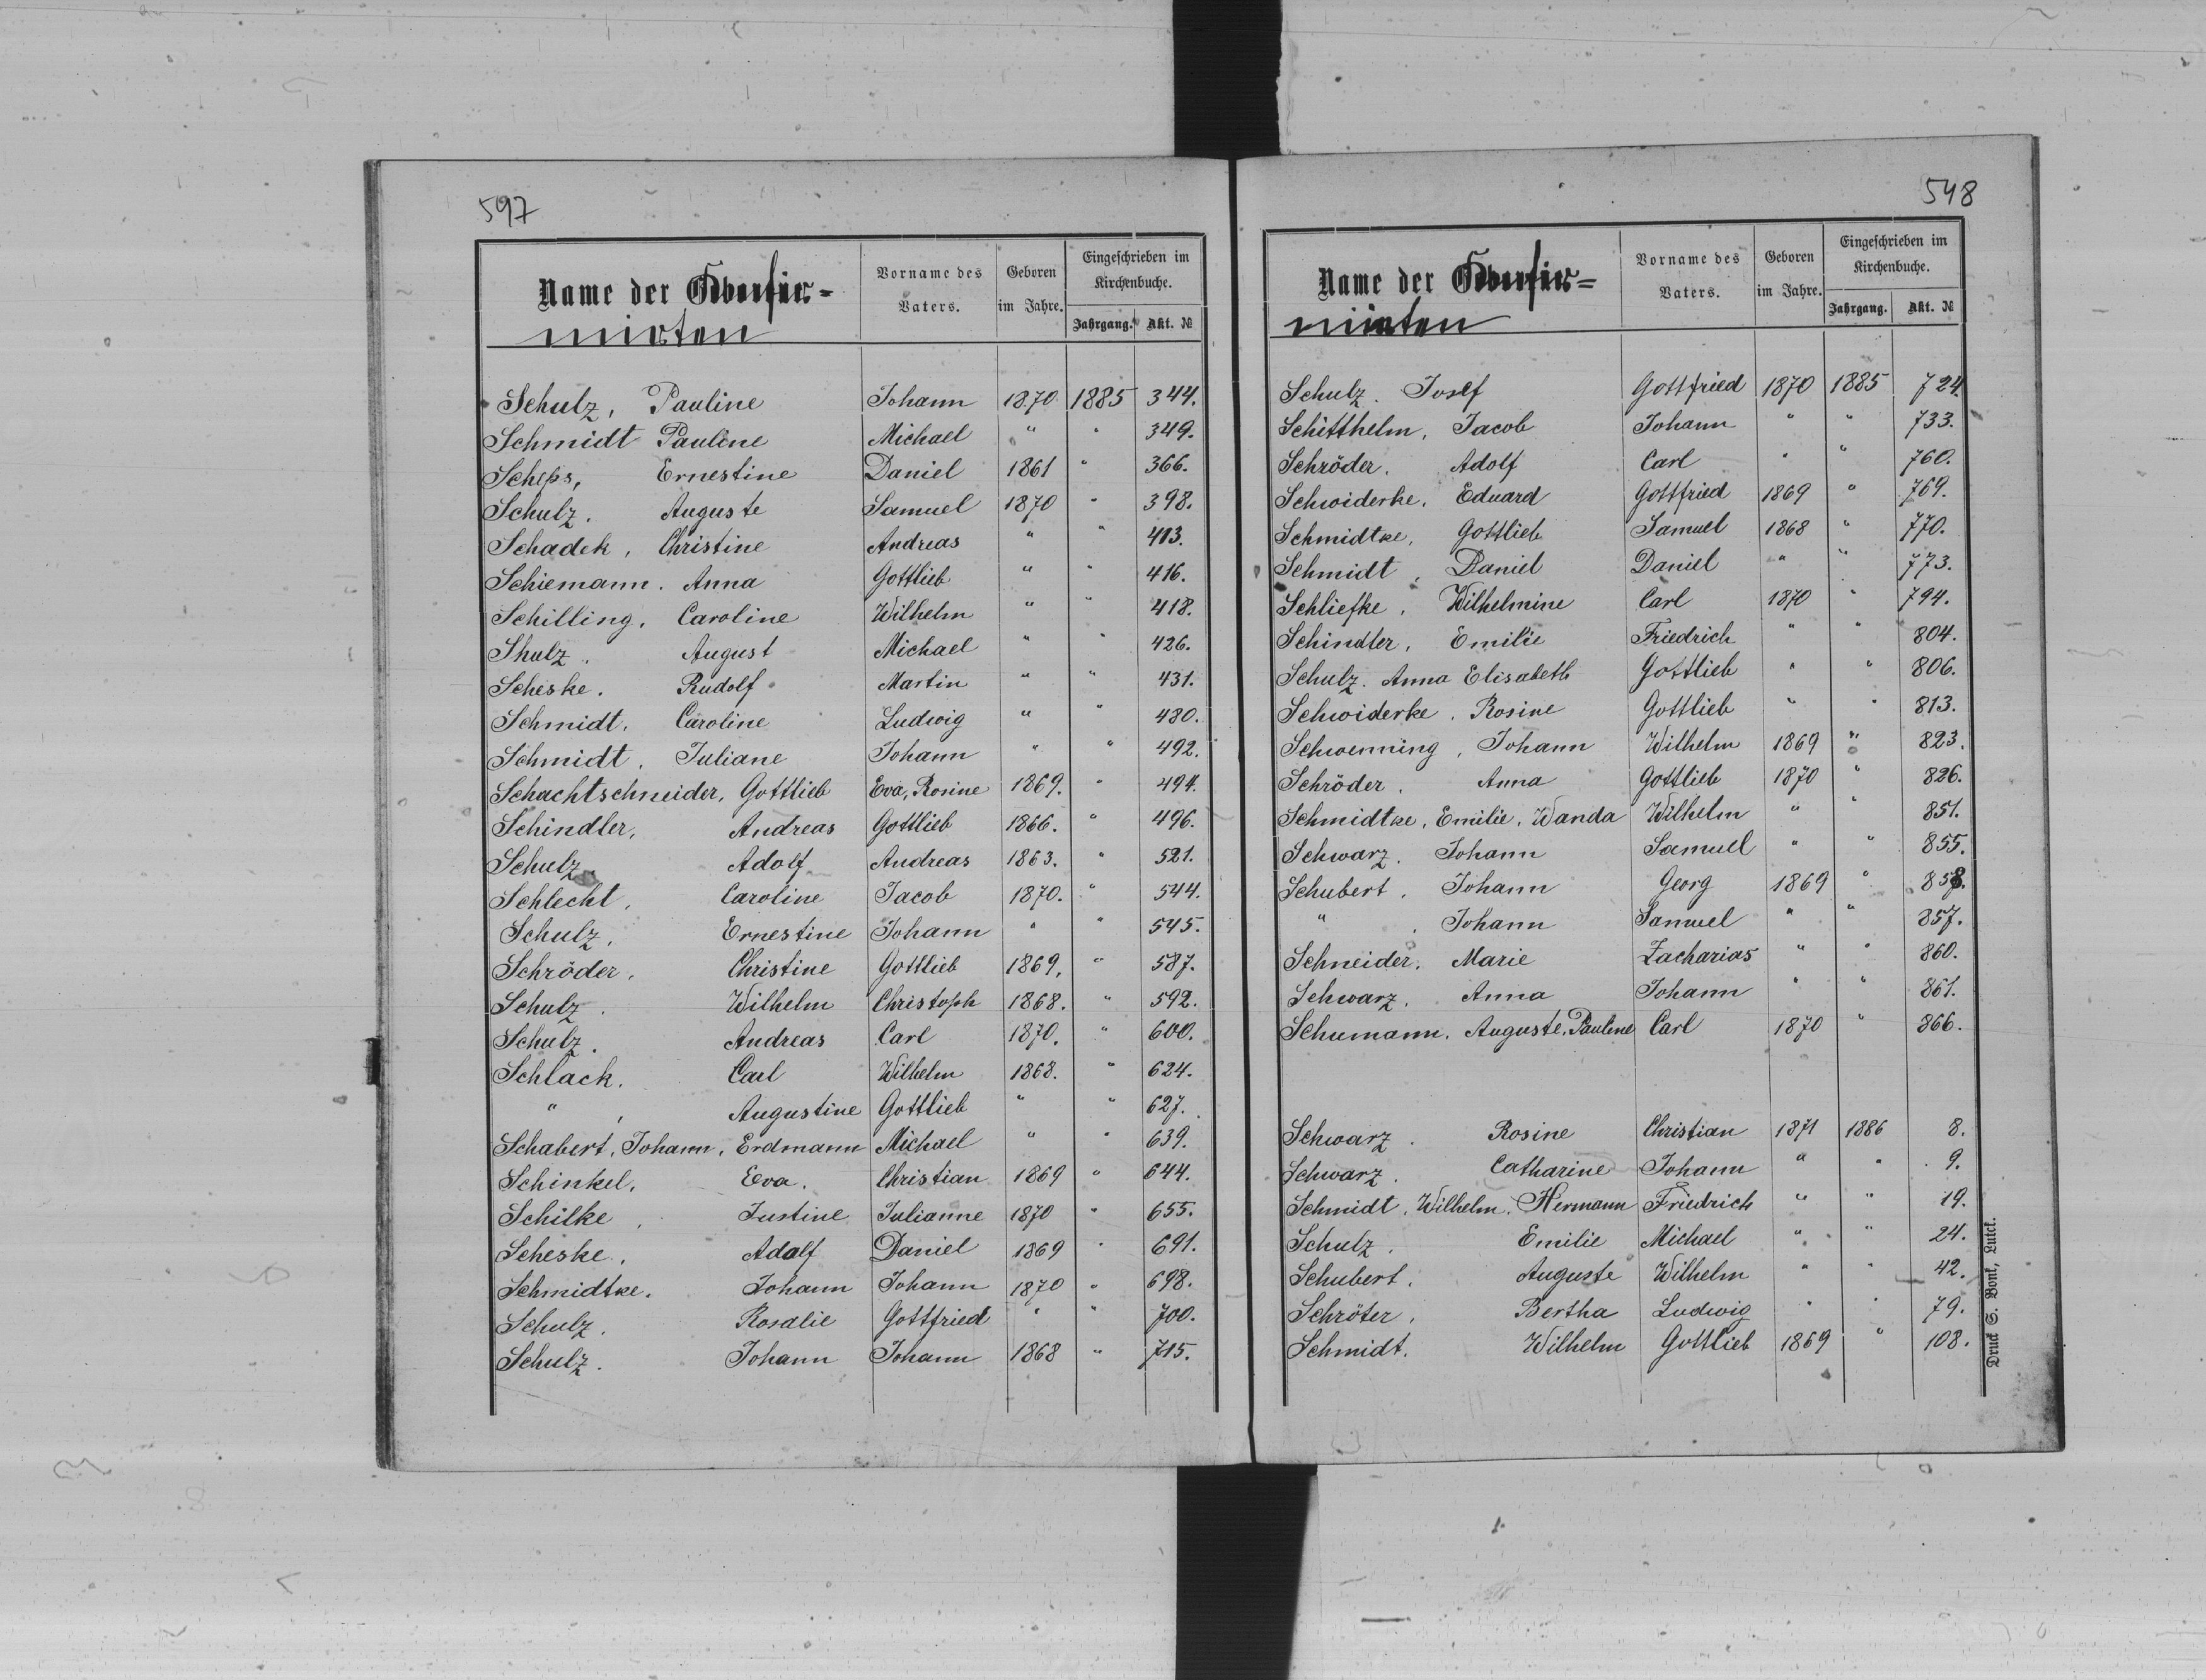 597
Name der
mirten
Vorname des Vaters.
Geboren im Jahre.
Eingeschrieben im Kirchenbuche.
Jahrgang. Akt. №
Schulz, Pauline Johann 1870 1885 344.
Schmidt Pauline Michael " " 349.
Scheps, Ernestine Daniel 1861 " 366.
Schulz. Auguste Samuel 1870 " 398.
Schadek, Christine Andreas " " 413.
Schiemann. Anna Gottlieb " " 416.
Schilling, Caroline Wilhelm " " 418.
Shulz. August Michael " " 426.
Scheske. Rudolf Martin " " 431.
Schmidt. Caroline Ludwig " " 480.
Schmidt. Juliane Johann " " 492.
Schachtschneider, Gottlieb Eva, Rosine 1869. " 494.
Schindler, Andreas Gottlieb 1866. " 496.
Schulz. Adolf Andreas 1863. " 521.
Schlecht. Caroline Jacob 1870. " 544.
Schulz. Ernestine Johann " " 545.
Schröder. Christine Gottlieb 1869. " 587.
Schulz. Wilhelm Christoph 1868. " 592.
Schulz. Andreas Carl 1870. " 600.
Schlack. Carl Wilhelm 1868. " 624.
" , Augustine Gottlieb " " 627.
Schabert, Johann, Erdmann Michael " " 639.
Schinkel, Eva. Christian 1869 " 644.
Schilke. Justine Julianne 1870 " 655.
Scheske. Adolf Daniel 1869 " 691.
Schmidtke. Johann Johann 1870 " 698.
Schulz. Rosalie Gottfried " " 700.
Schulz. Johann Johann 1868 " 715.
548
Name der
mirten
Vorname des Vaters.
Geboren im Jahre.
Eingeschrieben im Kirchenbuche.
Jahrgang. Akt. №
Schulz. Josef Gottfried 1870 1885 724.
Schitthelm, Jacob Johann " " 733.
Schröder. Adolf Carl " " 760.
Schwiderke, Eduard Gottfried 1869 " 769.
Schmidtke, Gottlieb Samuel 1868 " 770.
Schmidt, Daniel Daniel " " 773.
Schliefke. Wilhelmine Carl 1870 " 794.
Schindler, Emilie Friedrich " " 804.
Schulz. Anna Elisabeth Gottlieb " " 806.
Schwiderke. Rosine Gottlieb " " 813.
Schwenning, Johann Wilhelm 1869 " 823.
Schröder. Anna Gottlieb 1870 " 826.
Schmidtke, Emilie, Wanda Wilhelm " " 851.
Schwarz. Johann Samuel " " 855.
Schubert. Johann Georg 1869 " 858.
" . Johann Samuel " " 857.
Schneider. Marie Zacharias " " 860.
Schwarz. Anna Johann " " 861.
Schumann. Auguste, Pauline Carl 1870 " 866.
Schwarz. Rosine Christian 1871 1886 8.
Schwarz. Catharine Johann " " 9.
Schmidt, Wilhelm, Hermann Friedrich " " 19.
Schulz. Emilie Michael " " 24.
Schubert. Auguste Wilhelm " " 42.
Schröter. Bertha Ludwig " " 79.
Schmidt. Wilhelm Gottlieb 1869 " 108.
Druck S. Bonk, Lutck.